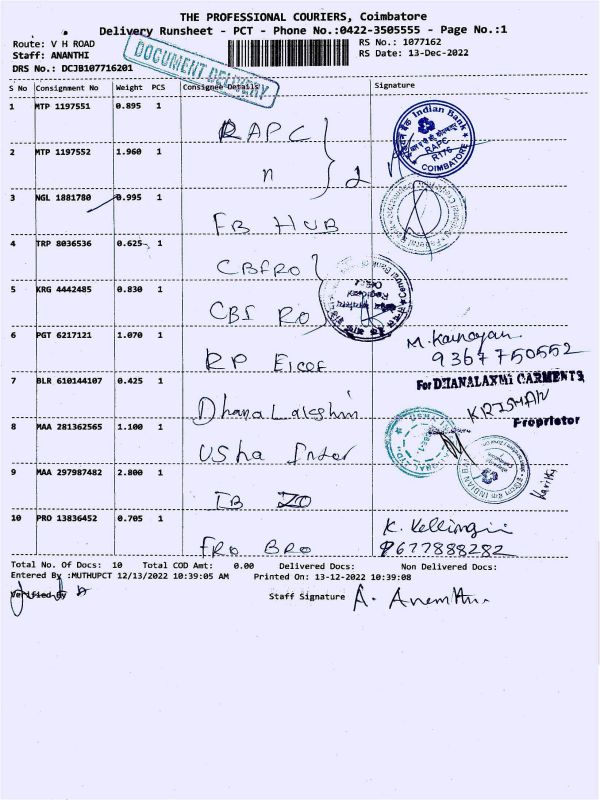 THE PROFESSIONAL COURIERS, Coimbatore
Delivery Runsheet - PCT - Phone No.:0422-3505555 - Page No.:1
Route: V H ROAD
RS No.: 1077162
Staff: ANANTHI
RS Date: 13-Dec-2022
DRS No.: DCJB107716201
DOCUMENT DELIVERY
S No Consignment No Weight PCS Consignee Details Signature
1 MTP 1197551 0.895 1 RAPC
Indian Bank
RAPC
R176
COIMBATORE
2 MTP 1197552 1.960 1 n } 2
3 NGL 1881780 0.995 1 FB HUB
4 TRP 8036536 0.625 1 CBFRO
5 KRG 4442485 0.830 1 CBI RO
Central Bank of
Regional
Office
6 PGT 6217121 1.070 1 RP
M.
9367750552
7 BLR 610144107 0.425 1 Dhana Lakshmi
For DHANALAXMI GARMENTS
KRISHAN
Proprietor
8 MAA 281362565 1.100 1 Usha Inter
9 MAA 297987482 2.800 1 IB ZO
10 PRO 13836452 0.705 1 FRO BRO
K.
9677888282
Total No. Of Docs: 10 Total COD Amt: 0.00 Delivered Docs: Non Delivered Docs:
Entered By :MUTHUPCT 12/13/2022 10:39:05 AM Printed On: 13-12-2022 10:39:08
Verified By
Staff Signature A.